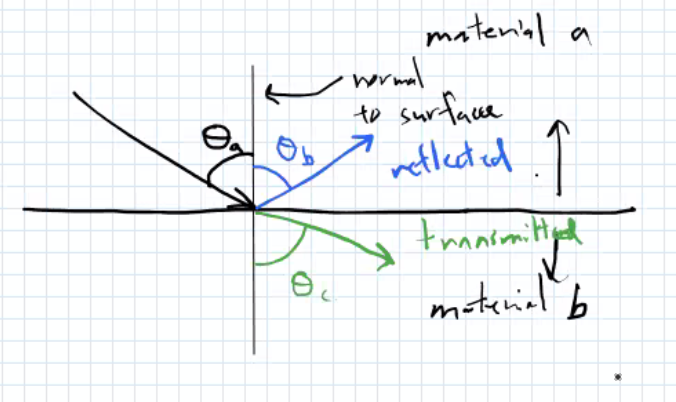 material a
normal
to surface
θa
θb
reflected
transmitted
θc
material b